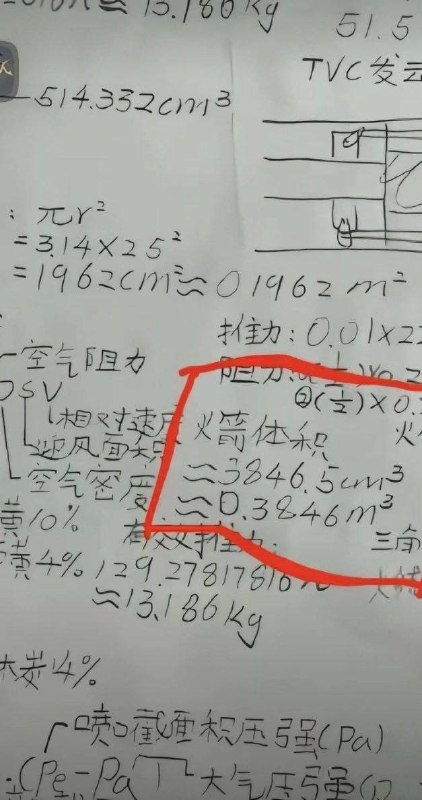 ≈ 13.186 Kg
51.5
TVC发动
514.332cm³
: πr²
= 3.14×25²
= 1962cm² ≈ 0.1962 m²
推力: 0.01×22
空气阻力
阻力:
②(½)×0.
SV
相对速度
迎风面积
空气密度
火箭体积
≈3846.5cm³
≈0.3846m³
黄10%
有效推力:
三角
磺4%
129.27817816
≈13.186 Kg
炭14%
喷口截面积压强(Pa)
(Pe-Pa) 大气压强(